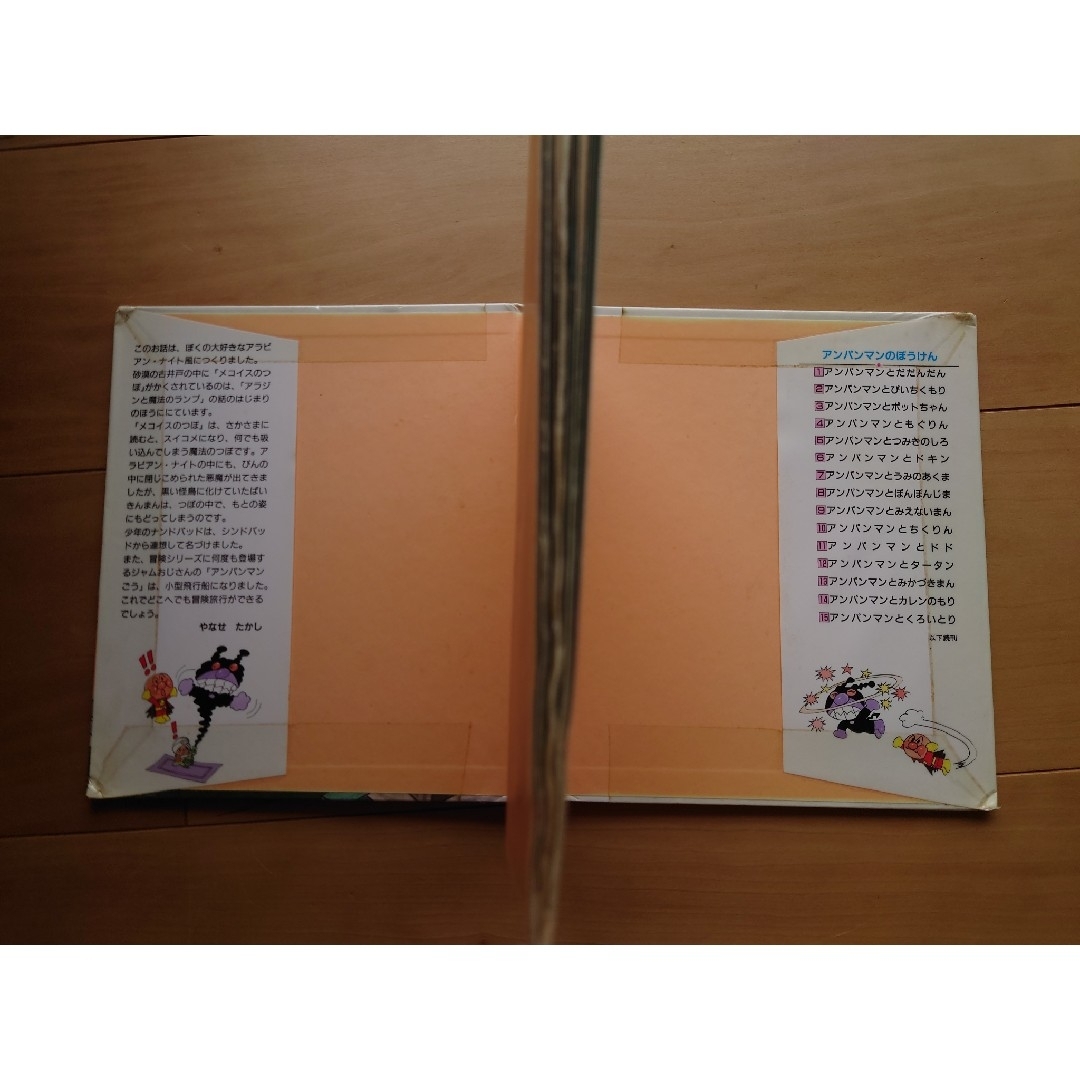 このお話は、ぼくの大好きなアラビ
アン・ナイト風につくりました。
砂漠の古井戸の中に「メコイスのつ
ぼ」がかくされているのは、「アラジ
ンと魔法のランプ」の話のはじまり
のほうににています。
「メコイスのつぼ」は、さかさまに
読むと、スイコメになり、何でも吸
い込んでしまう魔法のつぼです。ア
ラビアン・ナイトの中にも、びんの
中に閉じこめられた悪魔が出てきま
したが、黒い怪鳥に化けていたばい
きんまんは、つぼの中で、もとの姿
にもどってしまうのです。
少年のナンドバッドは、シンドバッ
ドから連想して名づけました。
また、冒険シリーズに何度も登場す
るジャムおじさんの「アンパンマン
ごう」は、小型飛行船になりました。
これでどこへでも冒険旅行ができる
でしょう。
やなせ たかし
!!
!
アンパンマンのぼうけん
1アンパンマンとだだんだん
2アンパンマンとぴいちくもり
3アンパンマンとポットちゃん
4アンパンマンともぐりん
5アンパンマンとつみきのしろ
6アンパンマンとドキン
7アンパンマンとうみのあくま
8アンパンマンとぽんぽんじま
9アンパンマンとみえないまん
10アンパンマンとちくりん
11アンパンマンとドド
12アンパンマンとタータン
13アンパンマンとみかづきまん
14アンパンマンとカレンのもり
15アンパンマンとくろいとり
以下続刊